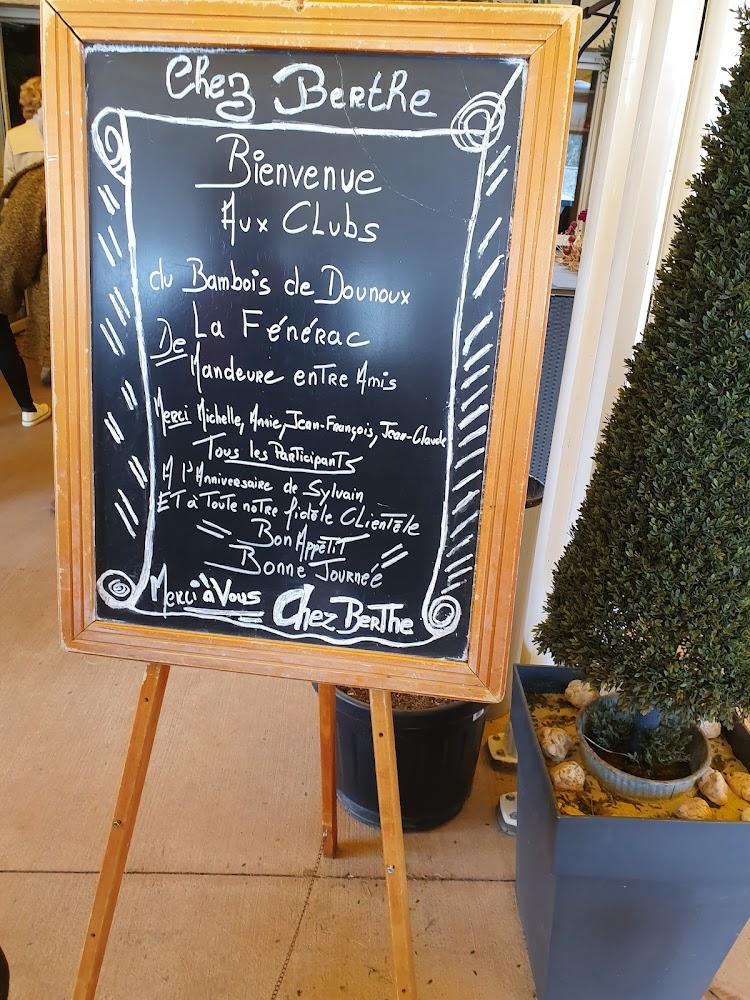 Chez Berthe
Bienvenue
Aux Clubs
du Bambois de Dounoux
La Fénérac
De Mandeure entre Amis
Merci Michelle, Annie, Jean-François, Jean-Claude
Tous les Participants
A l'Anniversaire de Sylvain
ET à Toute notre fidèle Clientèle
Bon Appétit
Bonne Journée
Merci à Vous Chez Berthe